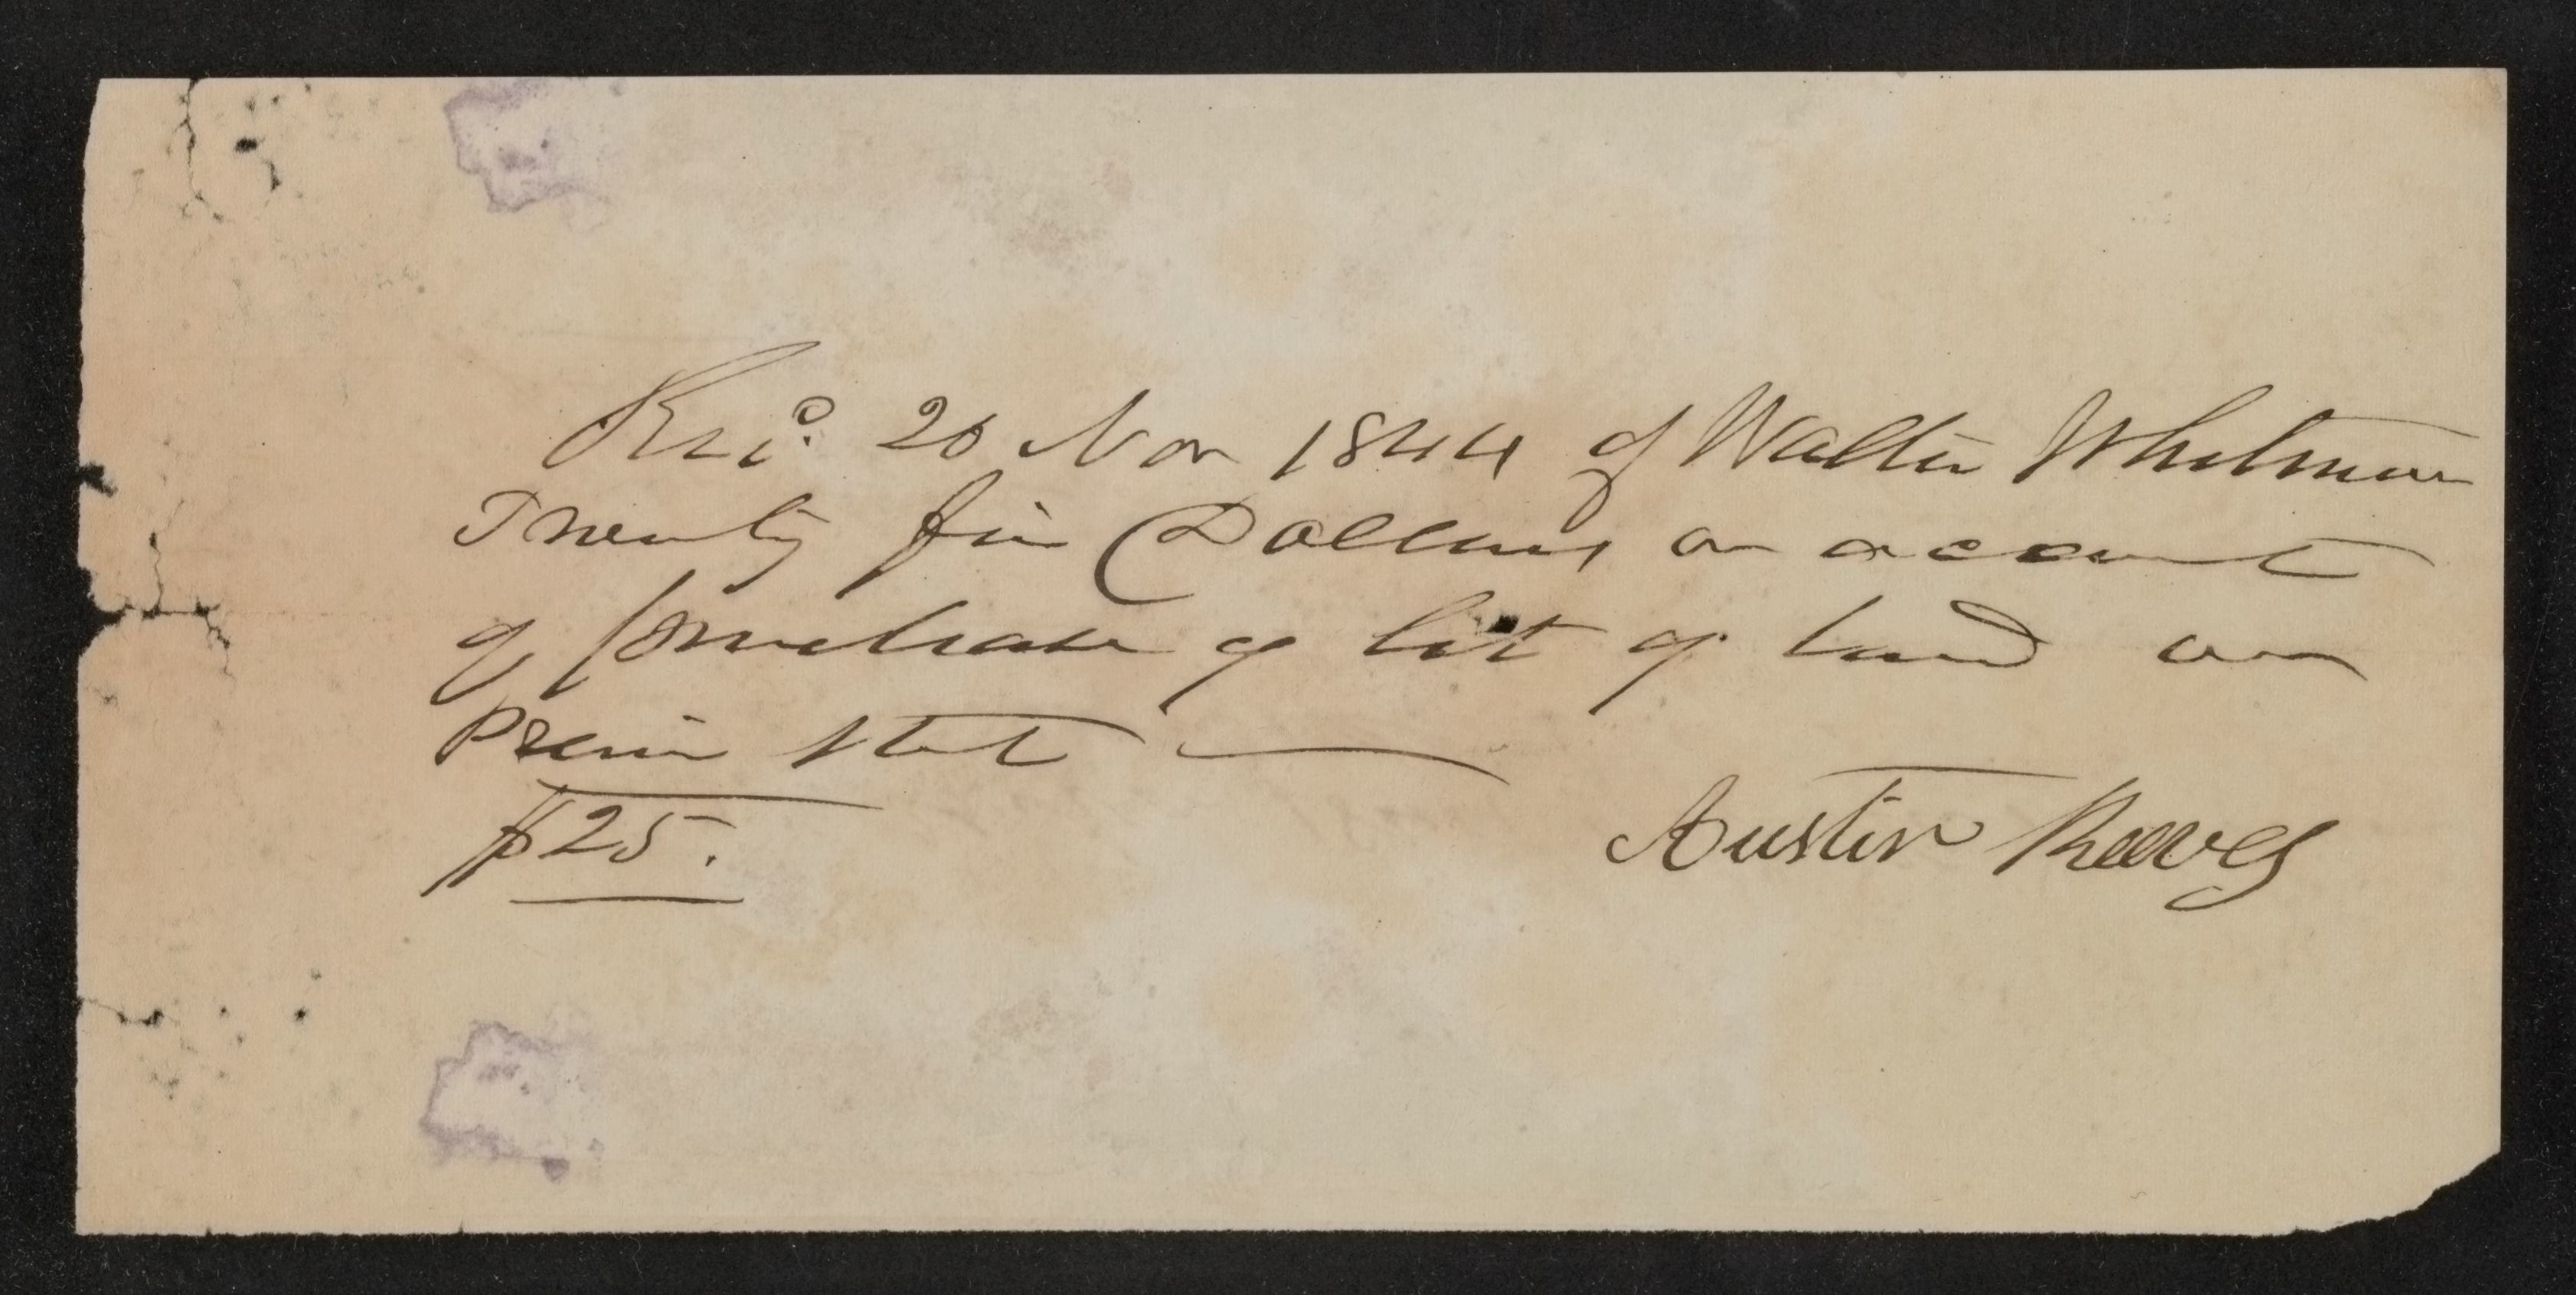 Recd. 20 Nov 1844 of Walter Whitman
Twenty five Dollars on account
of purchase of lot of land on
Prince street
$25.
Austin Reeves